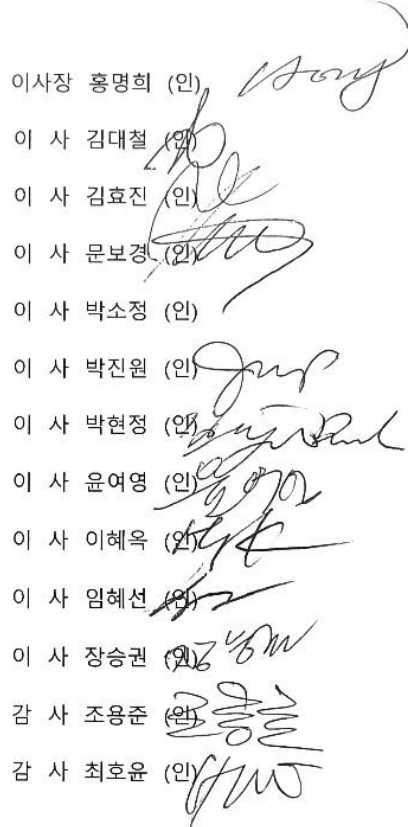 이사장 홍명희 (인) Hong
이 사 김대철 (인)
이 사 김효진 (인)
이 사 문보경 (인)
이 사 박소정 (인)
이 사 박진원 (인)
이 사 박현정 (인)
이 사 윤여영 (인)
이 사 이혜옥 (인)
이 사 임혜선 (인)
이 사 장승권 (인)
감 사 조용준 (인)
감 사 최호윤 (인)